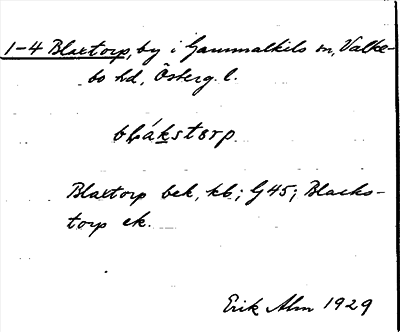 1-4 Blaxtorp, by i Gammalkils sn, Valke-
bo hd, Österg. l.
blákstorp
Blaxtorp bek, kb.; G45; Blacks-
torp ek.
Erik Alm 1929